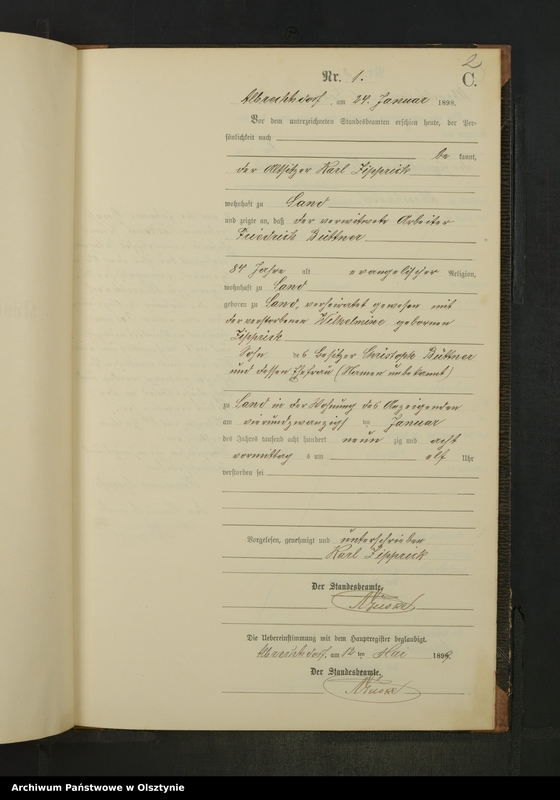 2
Nr. 1.
C.
Albrechtsdorf, am 24. Januar 1898.
Vor dem unterzeichneten Standesbeamten erschien heute, der Per-
sönlichkeit nach
be kannt,
der Altsitzer Karl Zipprick
wohnhaft zu Sand
und zeigte an, daß der verwitwete Arbeiter
Friedrich Büttner
84 Jahre alt evangelischer Religion,
wohnhaft zu Sand
geboren zu Sand, verheiratet gewesen mit
der verstorbenen Wilhelmine geborenen
Zipprick
Sohn des Besitzer Christoph Büttner
und dessen Ehefrau (Namen unbekannt)
zu Sand in der Wohnung des Anzeigenden
am vierundzwanzigst ten Januar
des Jahres tausend acht hundert neun zig und acht
vormittag s um elf Uhr
verstorben sei
Vorgelesen, genehmigt und unterschrieben
Karl Zipprick
Der Standesbeamte.
Die Uebereinstimmung mit dem Hauptregister beglaubigt.
Albrechtsdorf, am 12 ten Mai 1899.
Der Standesbeamte.
Archiwum Państwowe w Olsztynie